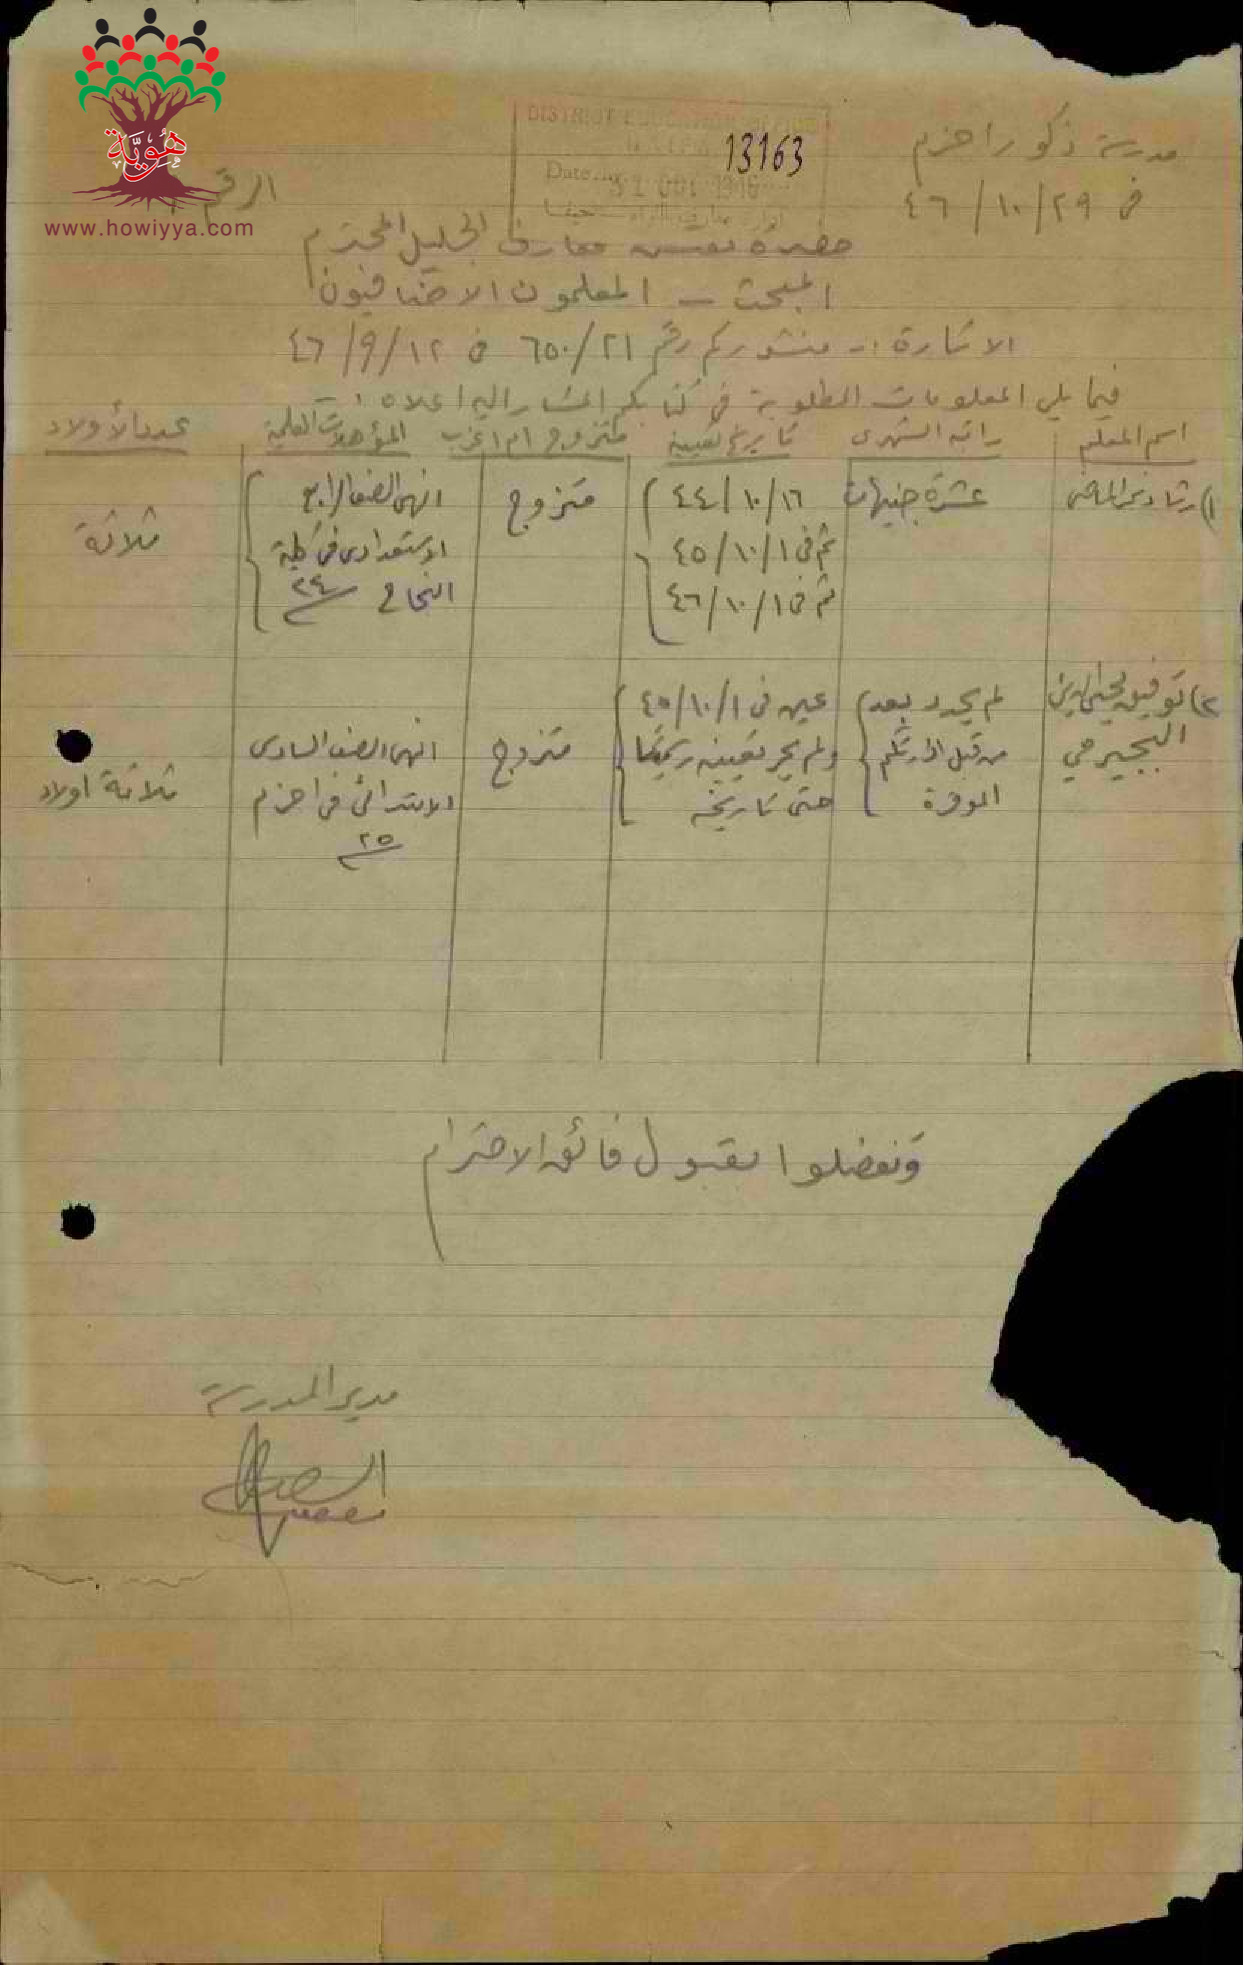 هُوِيَّة
www.howiyya.com
DISTRICT EDUCATION OFFICE
HAIFA
13163
Date
31 OCT 1946
مدرسة ذكور اجزم
في ٢٩/١٠/٤٦
الرقم
حضرة مفتش معارف الجليل المحترم
المبحث – المعلمون الاضافيون
الاشارة :- منشوركم رقم ٦٥٠/٢١ في ١٢/٩/٤٦
فيما يلي المعلومات المطلوبة في كتابكم المشار اليه اعلاه :-
اسم المعلم راتبه الشهري تاريخ تعيينه متزوج ام اعزب المؤهلات العلمية عدد الأولاد
١) رشاد عشرة جنيهات ١٦/١٠/٤٤ متزوج انهى الصف الرابع ثلاثة
ثم في ١/١٠/٤٥ الاستعدادي في كلية
ثم في ١/١٠/٤٦ النجاح ٢٤
٢) توفيق محيي الدين لم يحدد بعد عين في ١/١٠/٤٥
البجيرمي من قبل ادارتكم ولم يجر تعيينه رسميًا متزوج انهى الصف السادس ثلاثة اولاد
الموقرة حتى تاريخه الابتدائي في اجزم
٢٥
وتفضلوا بقبول فائق الاحترام
مدير المدرسة